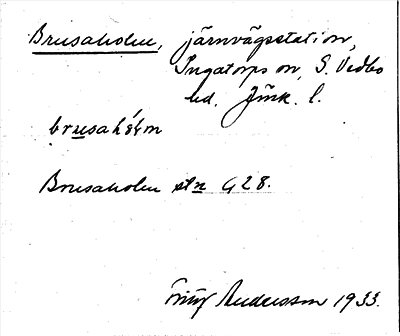 Brusaholm, järnvägsstation,
Ingatorps sn, S. Vedbo
hd. Jönk. l.
brusahólm
Brusaholm stn G 28.
Fritz Andersson 1933.